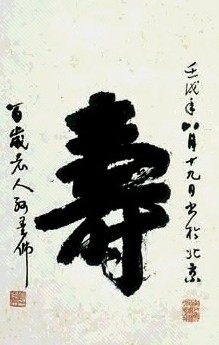 壬戌年八月十九日书于北京
寿
百歲老人孙墨佛